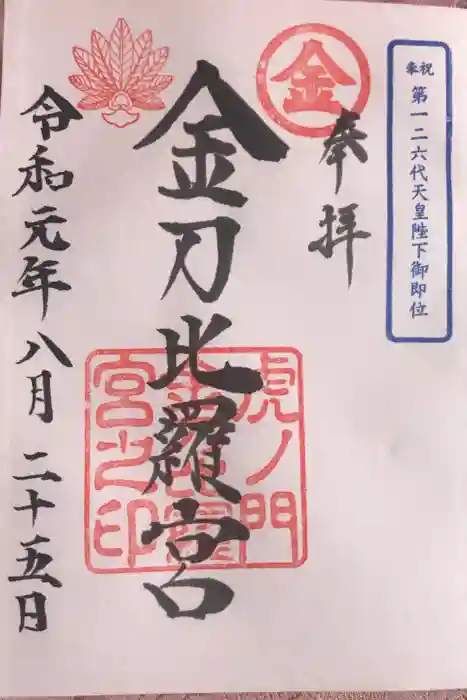 奉祝 第一二六代天皇陛下御即位
金
奉拝
金刀比羅宮
虎ノ門
金刀比羅
宮之印
令和元年八月二十五日